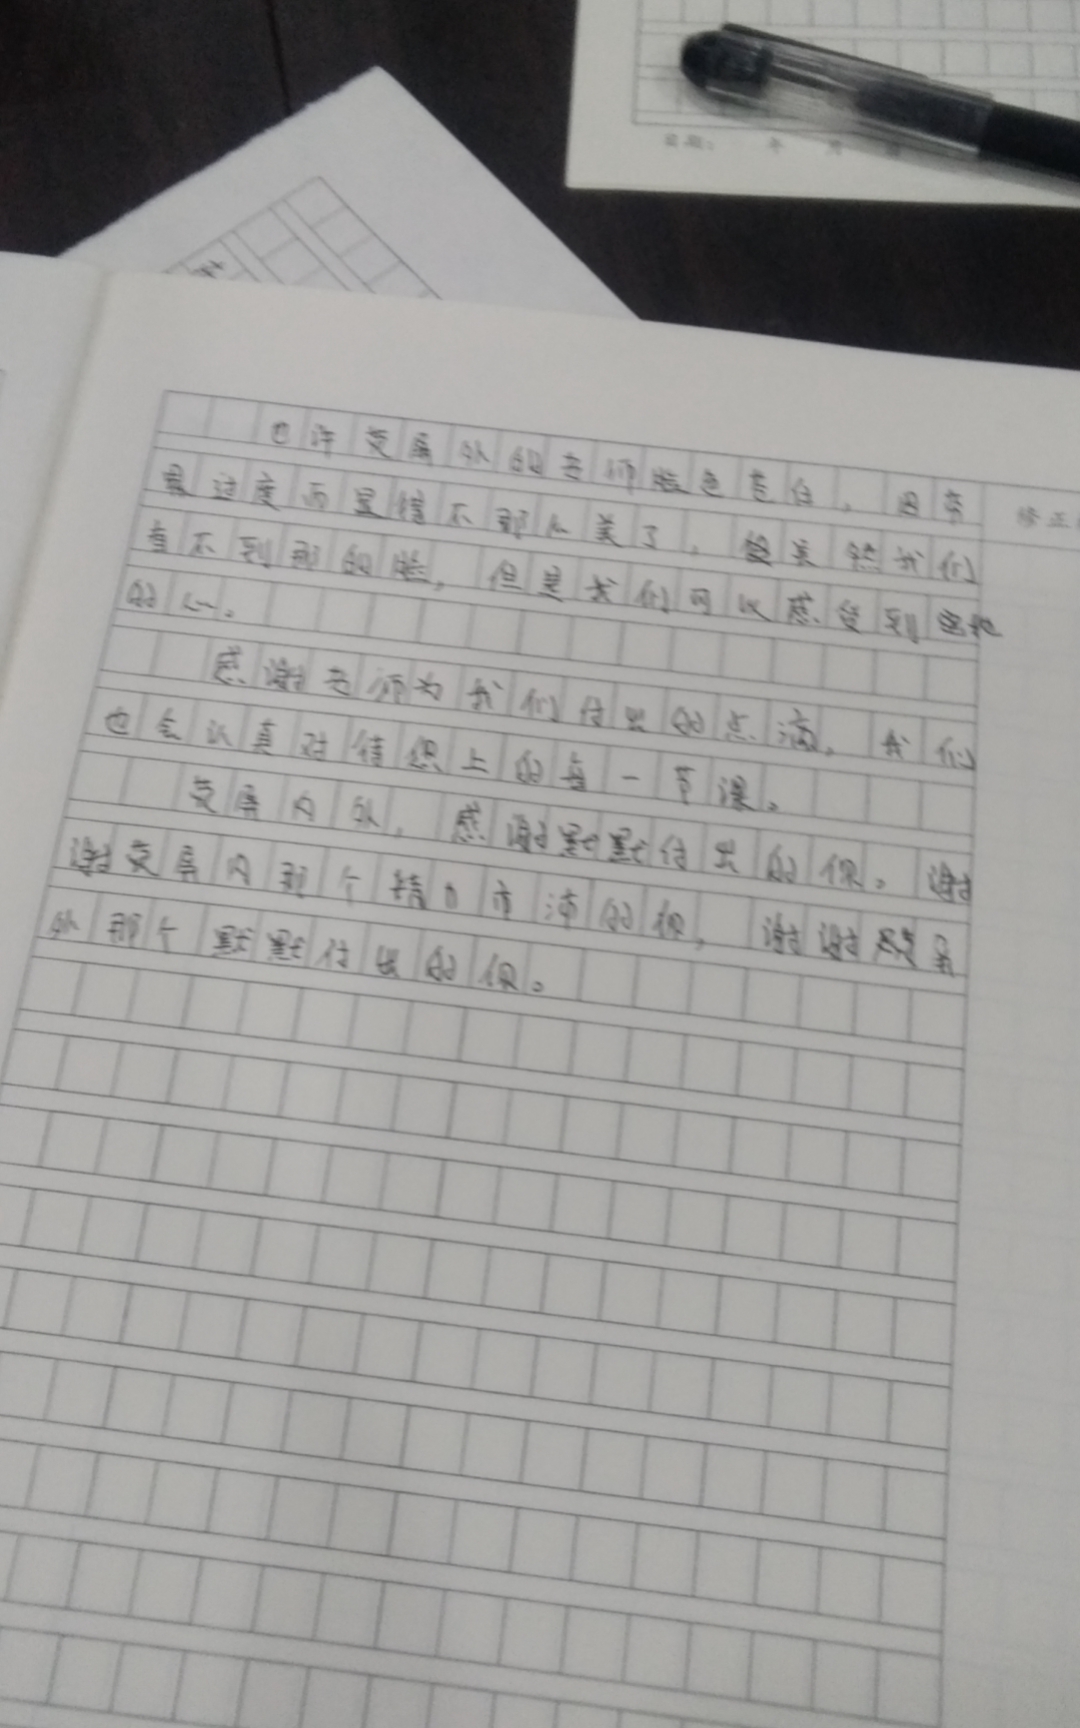 也许荧屏外的老师脸色苍白，因劳
累过度而显得不那么美了，虽然我们
看不到那的脸，但是我们可以感受到
的心。
感谢老师为我们付出的点滴，我们
也会认真对待线上的每一节课。
荧屏内外，感谢默默付出的你。谢
谢荧屏内那个精力充沛的你，谢谢荧屏
外那个默默付出的你。
修正
日期： 年 月 日